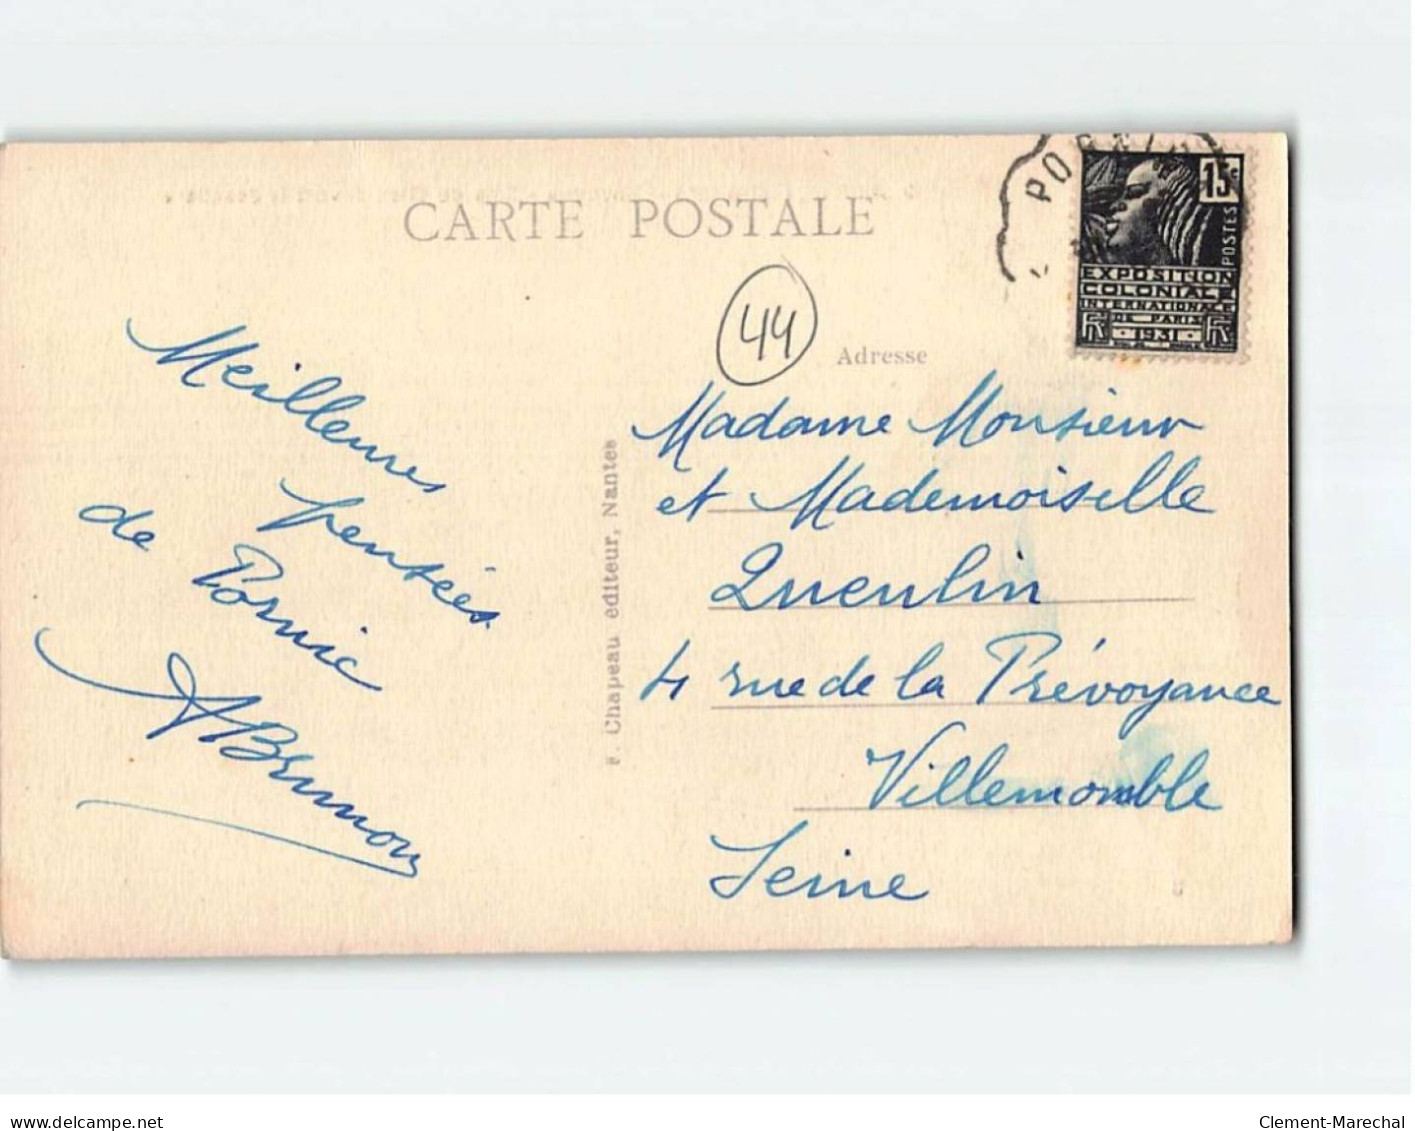 CARTE POSTALE
PORNIC
15c
POSTES
EXPOSITION
COLONIALE
INTERNATIONALE
DE PARIS
1931
44
Adresse
Meilleures
pensées
de Pornic
ABrunon
F. Chapeau éditeur, Nantes
Madame Monsieur
et Mademoiselle
Queulin
4 rue de la Prévoyance
Villemomble
Seine
www.delcampe.net
Clement-Marechal